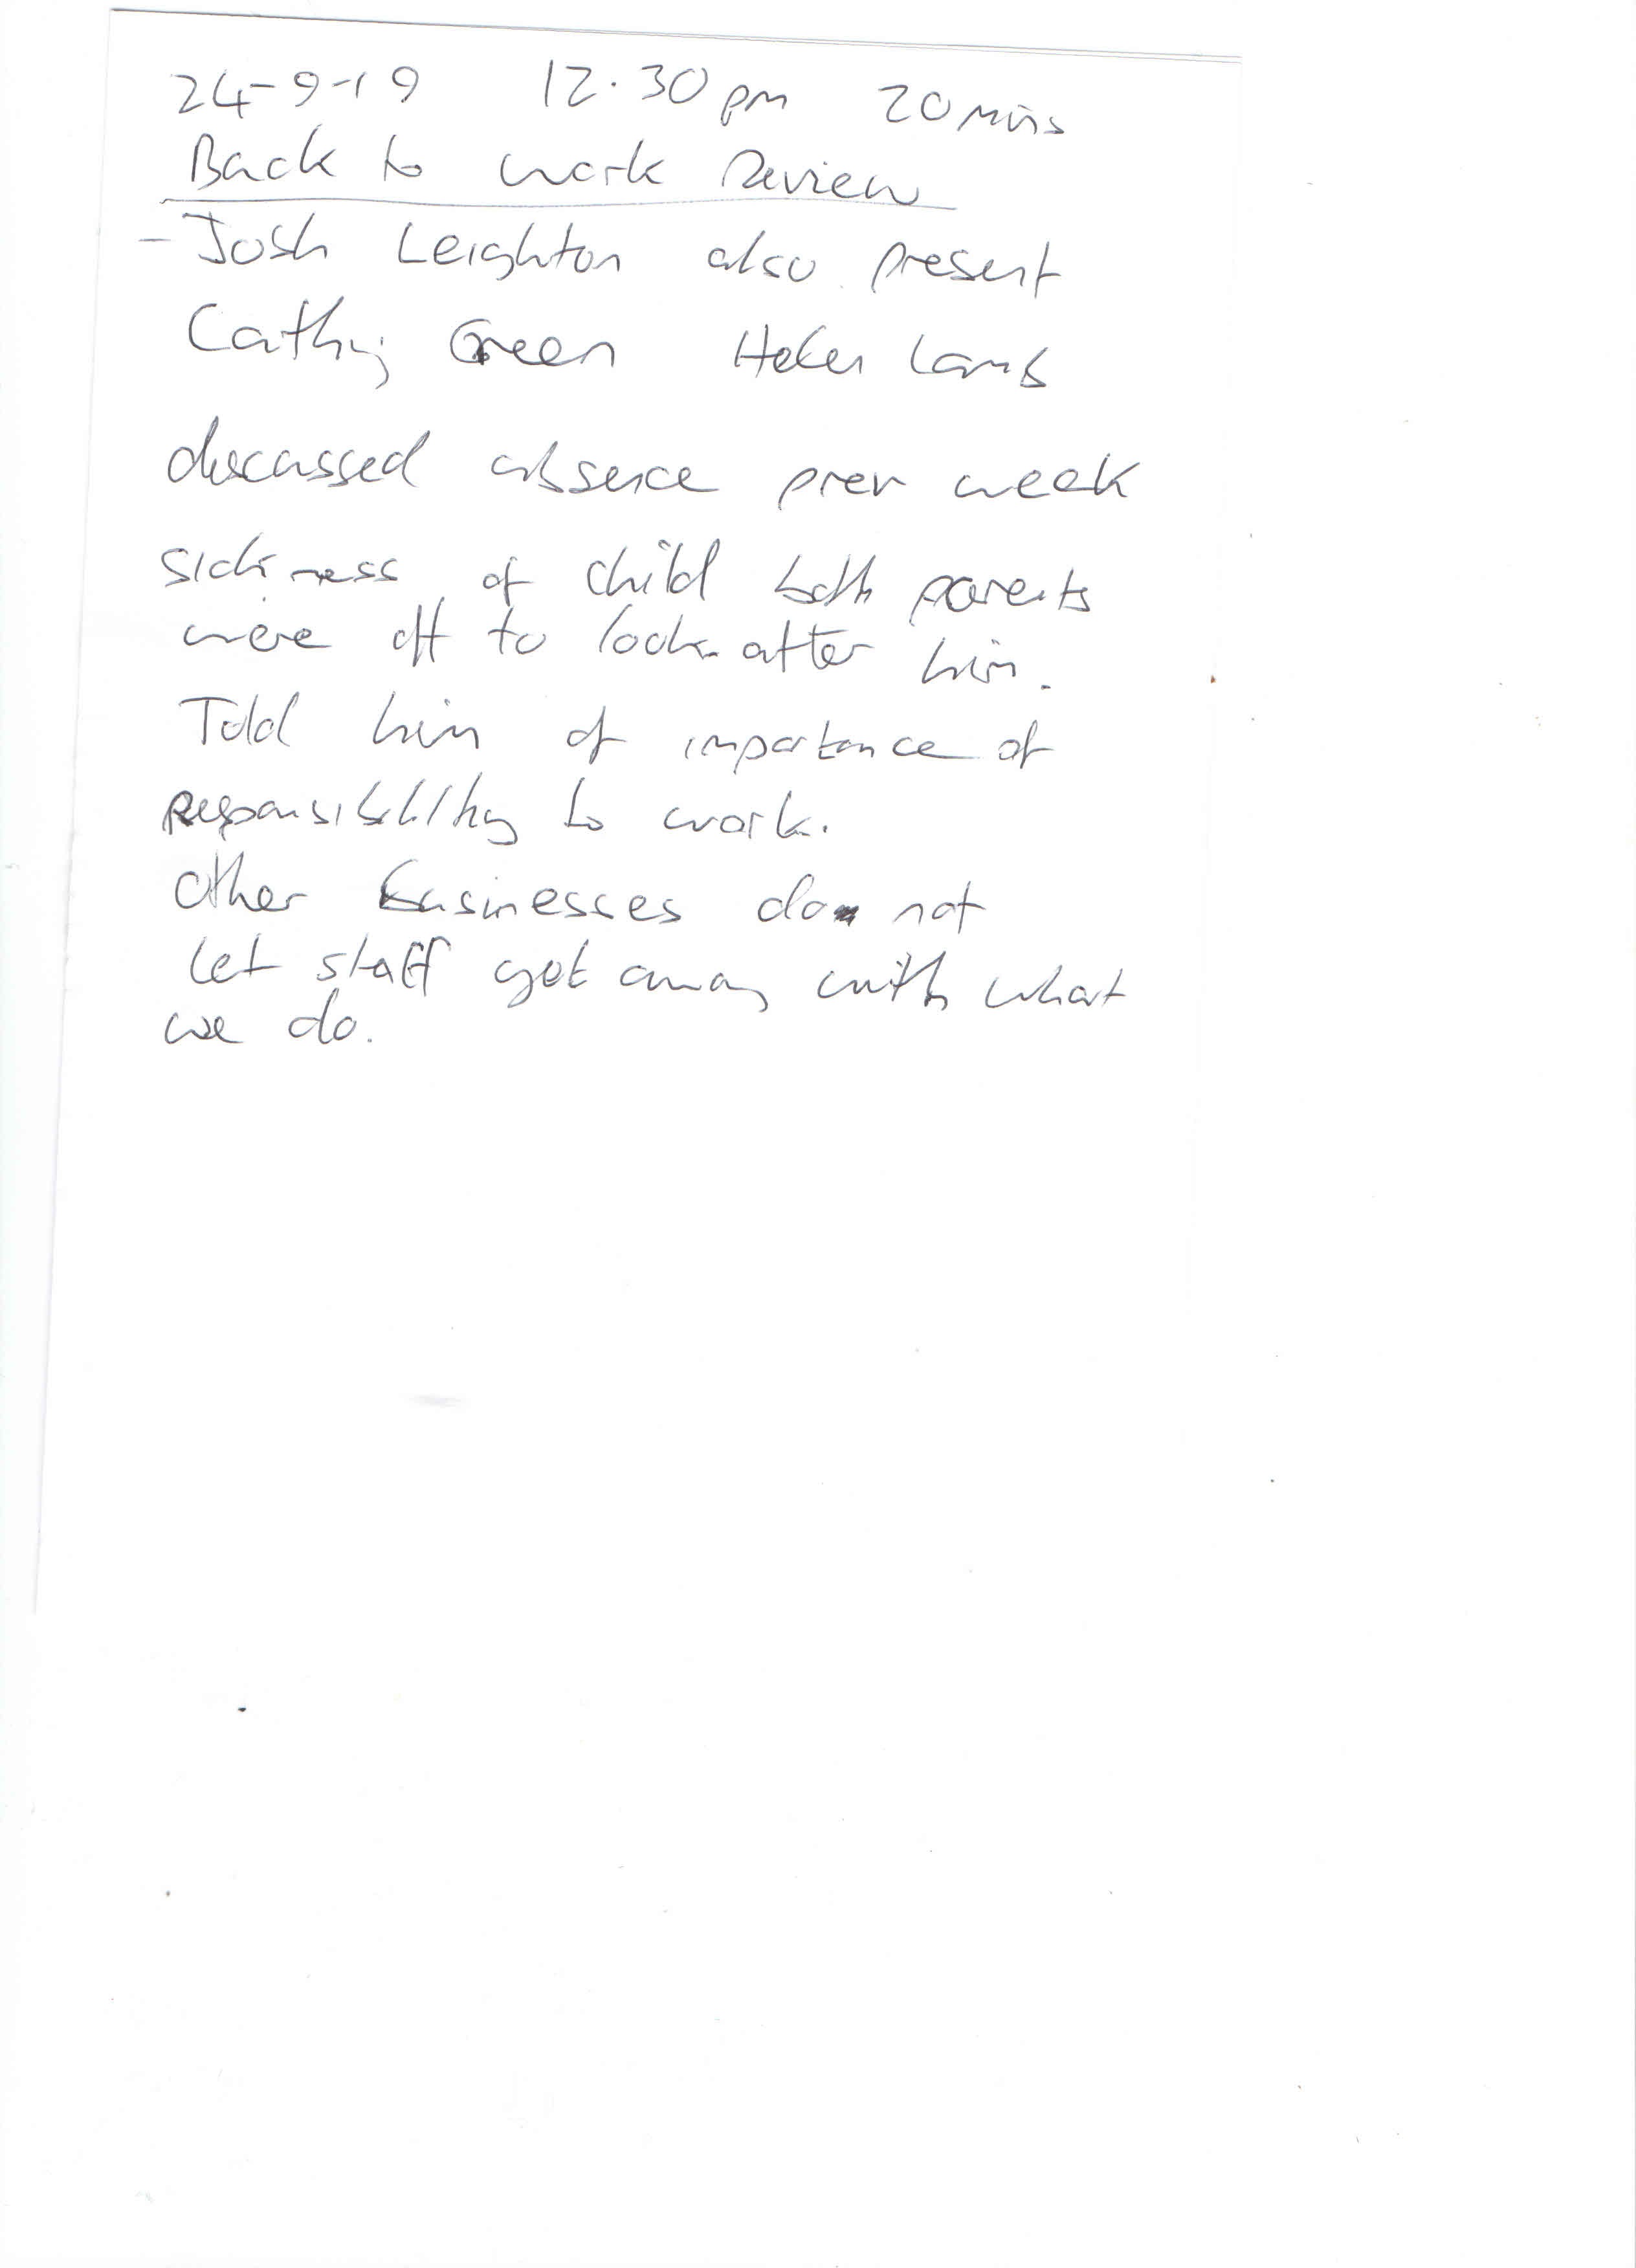 24-9-19 12.30pm 20 mins
Back to work Review
- Josh Leighton also present
Cathy Green Helen Lamb
discussed absence prev week
sickness of child both parents
were off to look after him.
Told him of importance of
Responsibility to work.
Other businesses do not
let staff get away with what
we do.